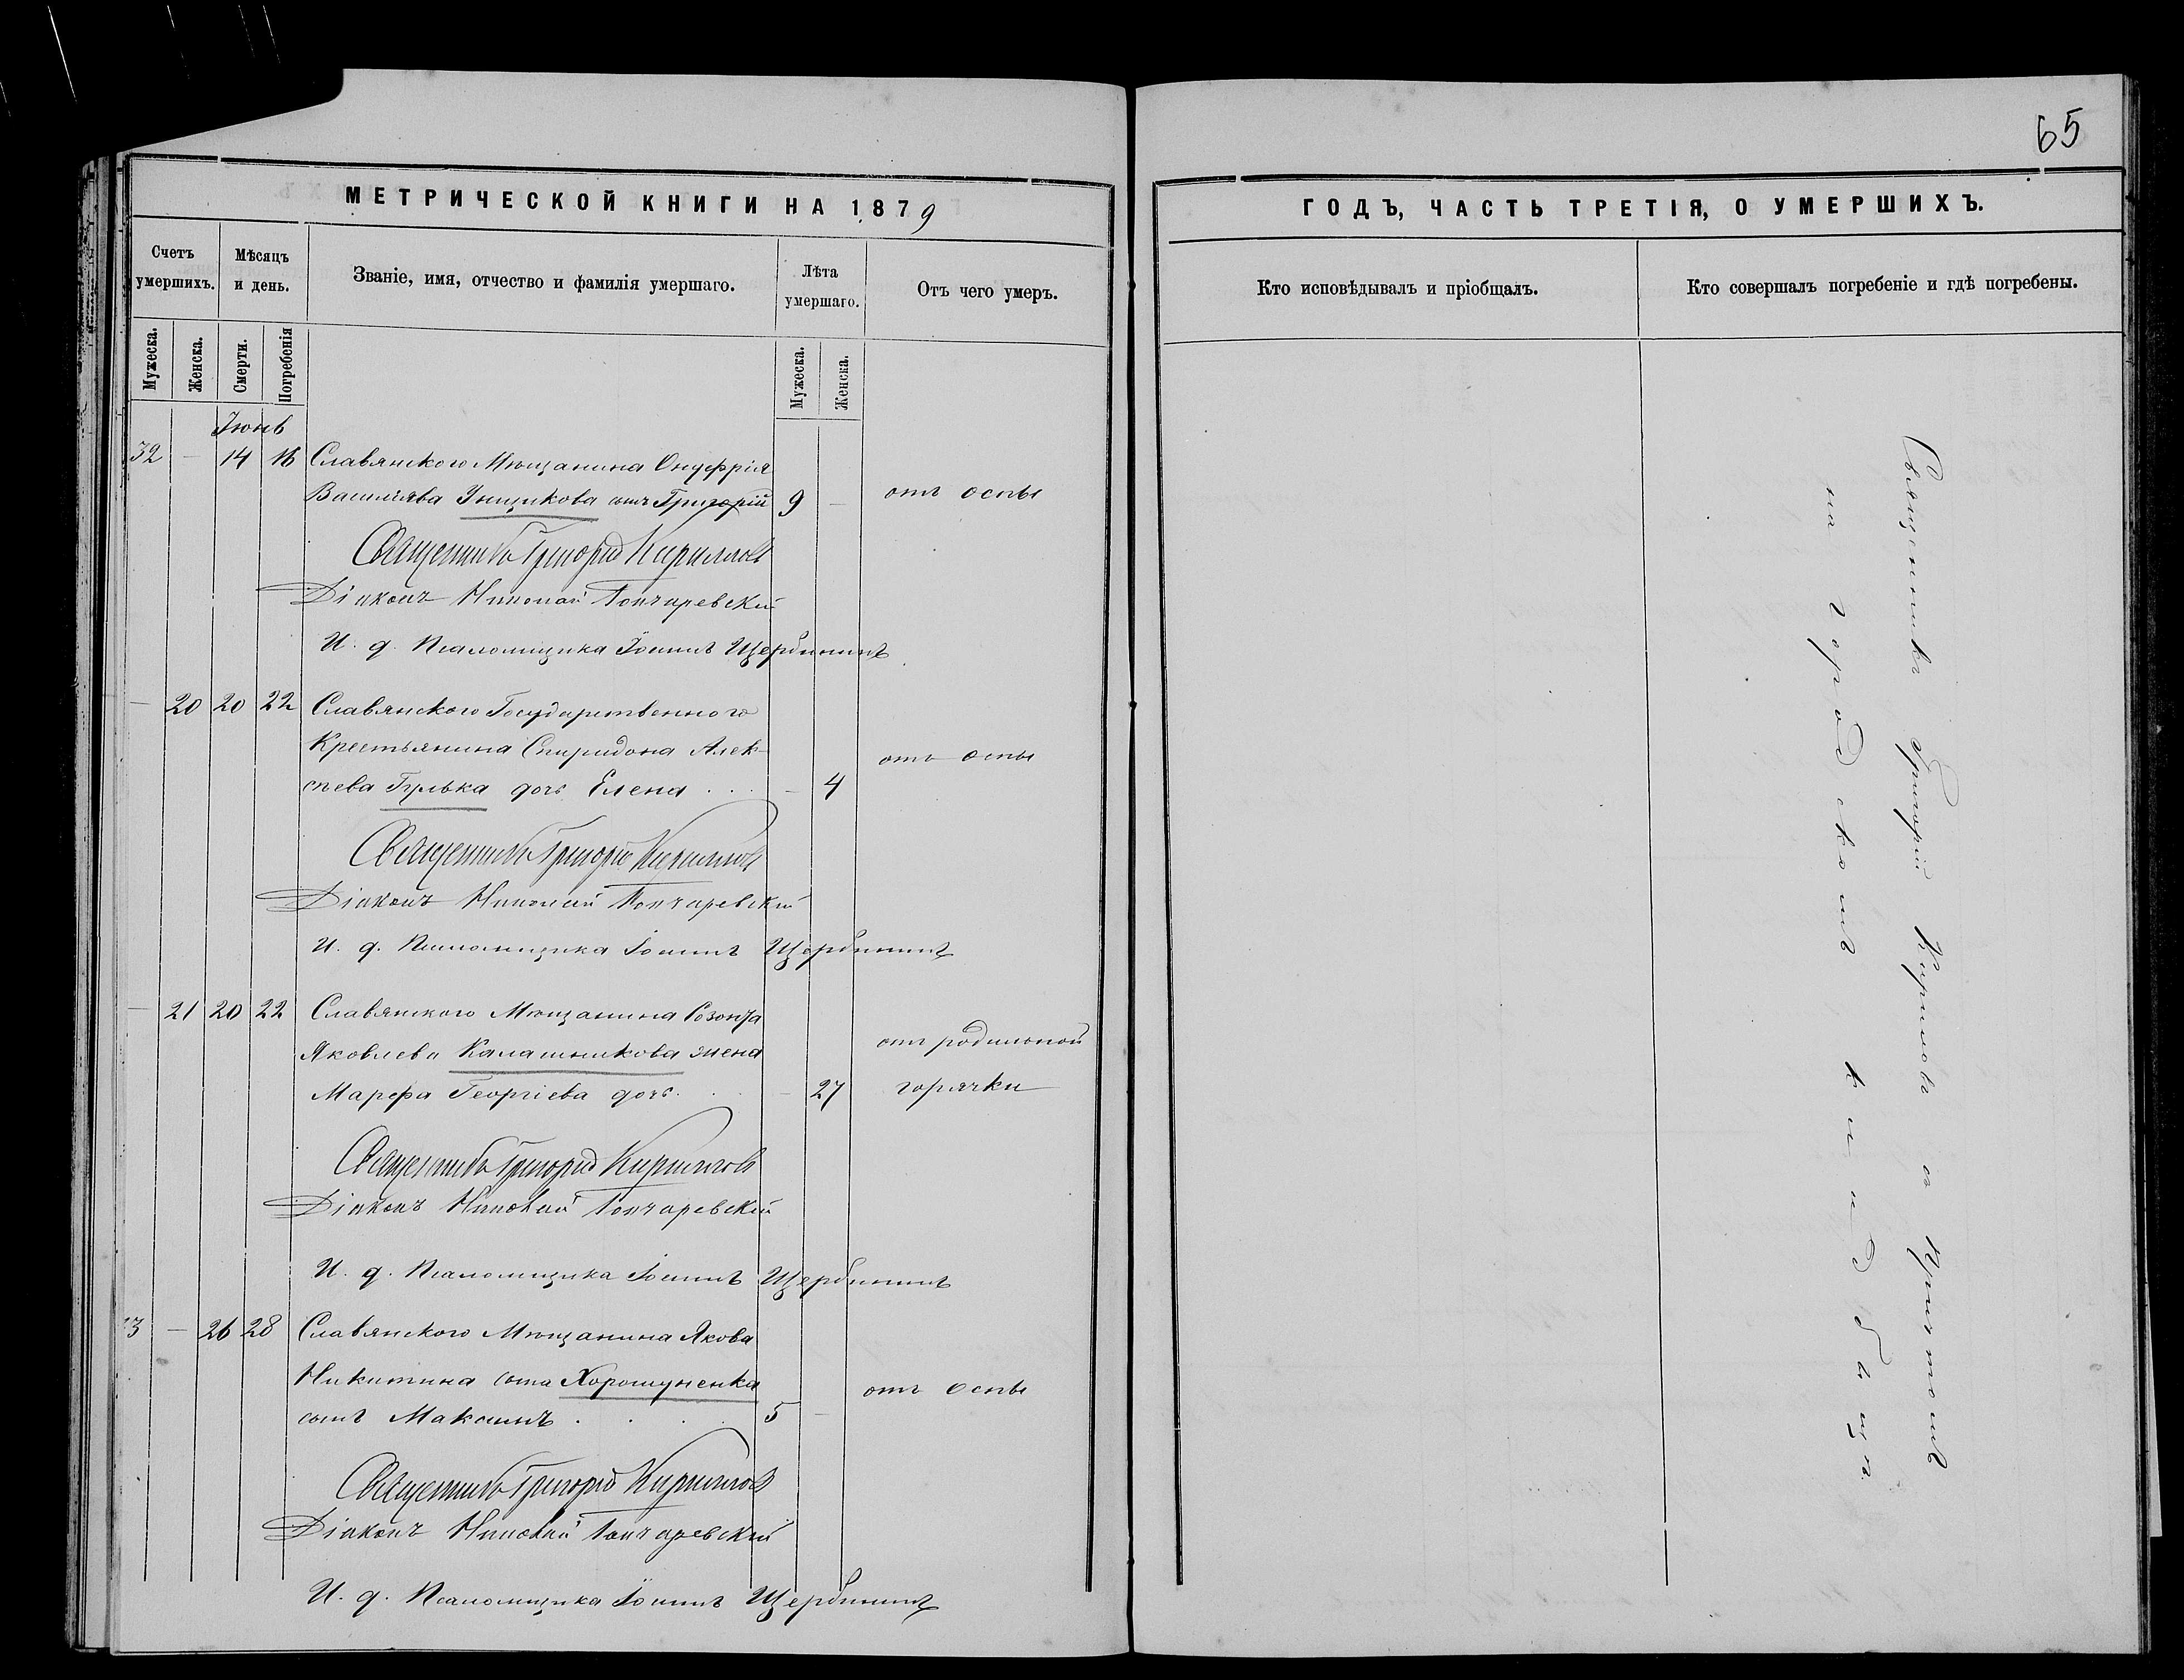 65
МЕТРИЧЕСКОЙ КНИГИ НА 1879
ГОДЪ, ЧАСТЬ ТРЕТІЯ, О УМЕРШИХЪ.
Счетъ умершихъ.
Мѣсяцъ и день.
Званіе, имя, отчество и фамилія умершаго.
Лѣта умершаго.
Отъ чего умеръ.
Кто исповѣдывалъ и пріобщалъ.
Кто совершалъ погребеніе и гдѣ погребены.
Мужеска.
Женска.
Смерти.
Погребенія
Мужеска.
Женска.
Іюнь
32 — 14 16 Славянскаго Мѣщанина Онуфрія
Васильева сынъ Григорій 9 — отъ оспы
Священникъ Григорій Кирилловъ
Діаконъ Николай Гончаревскій
И. д. Псаломщика Іоаннъ Щербининъ
— 20 20 22 Славянского Государственного
Крестьянина Спиридона Алек-
сѣева Гулька дочь Елена . . . — 4 отъ оспы
Священникъ Григорій Кирилловъ
Діаконъ Николай Гончаревскій
И. д. Псаломщика Іоаннъ Щербининъ
— 21 20 22 Славянского Мѣщанина Созонта
Яковлева Калашникова жена отъ родильной
Марѳа Георгіева дочь. — 27 горячки
Священникъ Григорій Кирилловъ
Діаконъ Николай Гончаревскій
И. д. Псаломщика Іоаннъ Щербининъ
33 — 26 28 Славянского Мѣщанина Якова
Никитина сына Хорошуненка отъ оспы
сынъ Максимъ . . . . 5 —
Священникъ Григорій Кирилловъ
Діаконъ Николай Гончаревскій
И. д. Псаломщика Іоаннъ Щербининъ
Священникъ Григорій Кириловъ съ причтомъ
на городскомъ кладбищѣ.